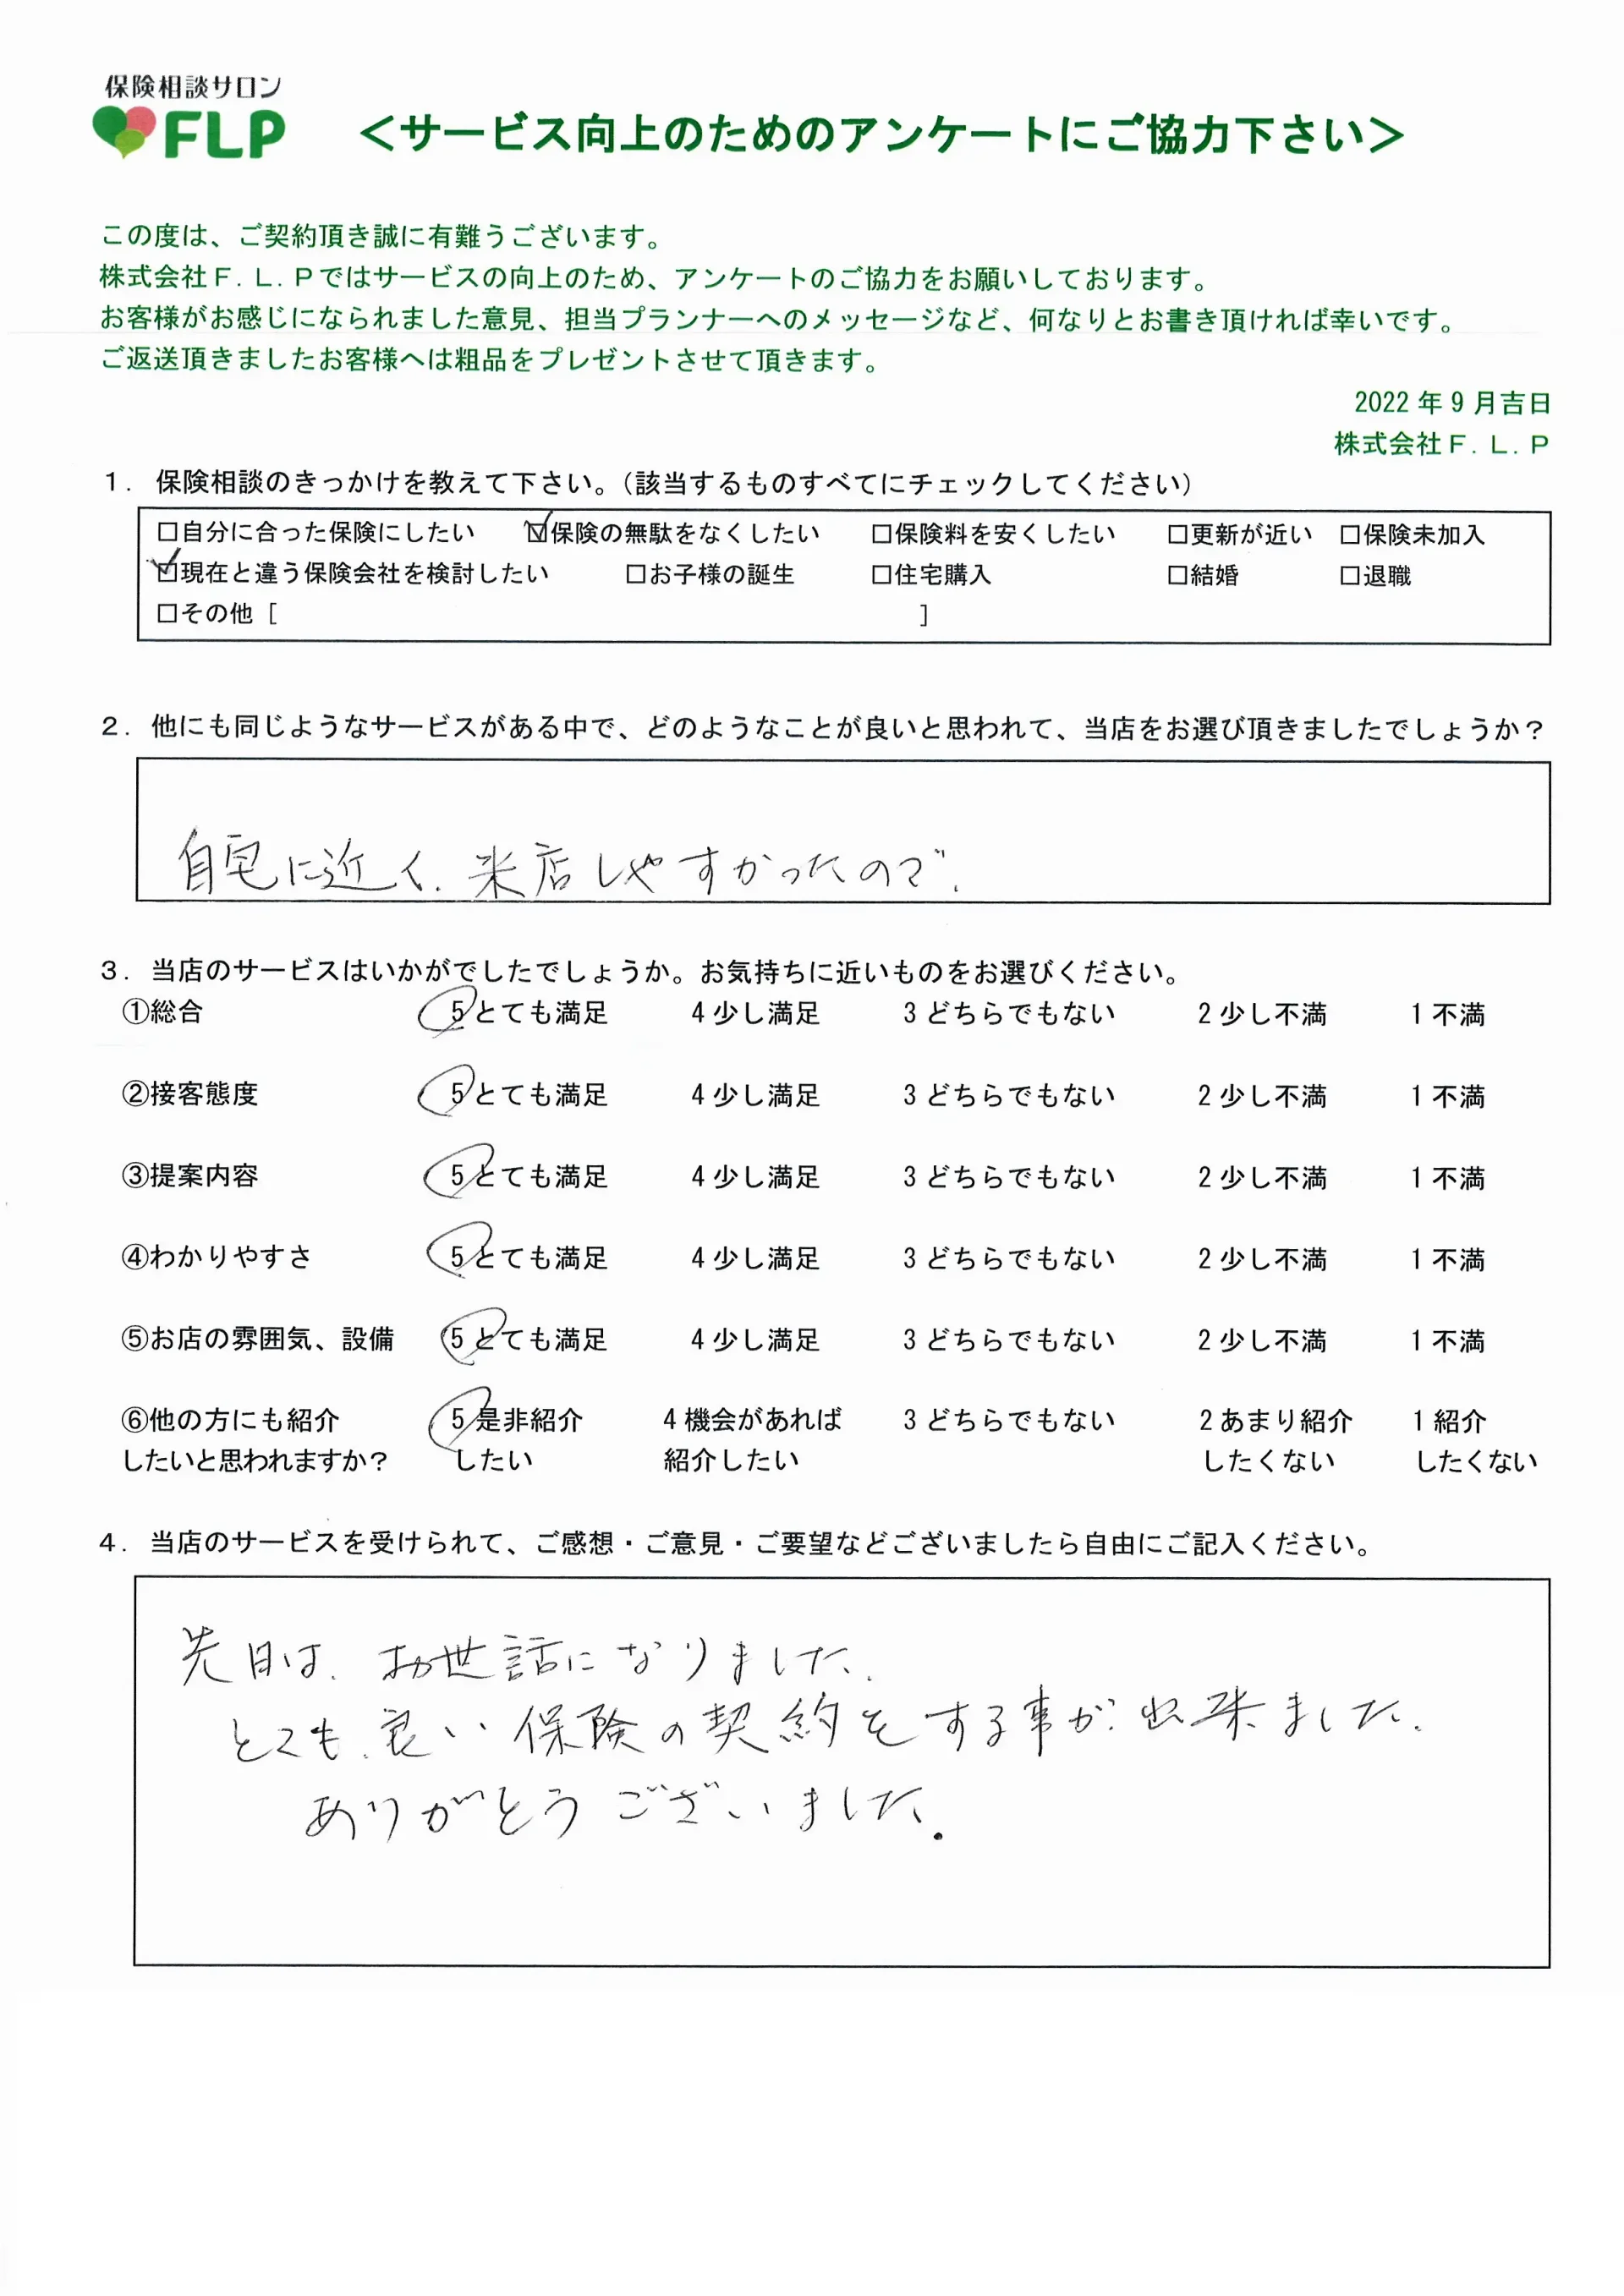 保険相談サロン
FLP
＜サービス向上のためのアンケートにご協力下さい＞
この度は、ご契約頂き誠に有難うございます。
株式会社Ｆ．Ｌ．Ｐではサービスの向上のため、アンケートのご協力をお願いしております。
お客様がお感じになられました意見、担当プランナーへのメッセージなど、何なりとお書き頂ければ幸いです。
ご返送頂きましたお客様へは粗品をプレゼントさせて頂きます。
2022 年 9 月吉日
株式会社Ｆ．Ｌ．Ｐ
１．保険相談のきっかけを教えて下さい。（該当するものすべてにチェックしてください）
□自分に合った保険にしたい ☑保険の無駄をなくしたい □保険料を安くしたい □更新が近い □保険未加入
☑現在と違う保険会社を検討したい □お子様の誕生 □住宅購入 □結婚 □退職
□その他［ ］
２．他にも同じようなサービスがある中で、どのようなことが良いと思われて、当店をお選び頂きましたでしょうか？
自宅に近く、来店しやすかったので、
３．当店のサービスはいかがでしたでしょうか。お気持ちに近いものをお選びください。
①総合 5 とても満足 4 少し満足 3 どちらでもない 2 少し不満 1 不満
②接客態度 5 とても満足 4 少し満足 3 どちらでもない 2 少し不満 1 不満
③提案内容 5 とても満足 4 少し満足 3 どちらでもない 2 少し不満 1 不満
④わかりやすさ 5 とても満足 4 少し満足 3 どちらでもない 2 少し不満 1 不満
⑤お店の雰囲気、設備 5 とても満足 4 少し満足 3 どちらでもない 2 少し不満 1 不満
⑥他の方にも紹介 5 是非紹介 4 機会があれば 3 どちらでもない 2 あまり紹介 1 紹介
したいと思われますか？ したい 紹介したい したくない したくない
４．当店のサービスを受けられて、ご感想・ご意見・ご要望などございましたら自由にご記入ください。
先日は、お世話になりました、
とても、良い保険の契約をする事が出来ました、
ありがとうございました。